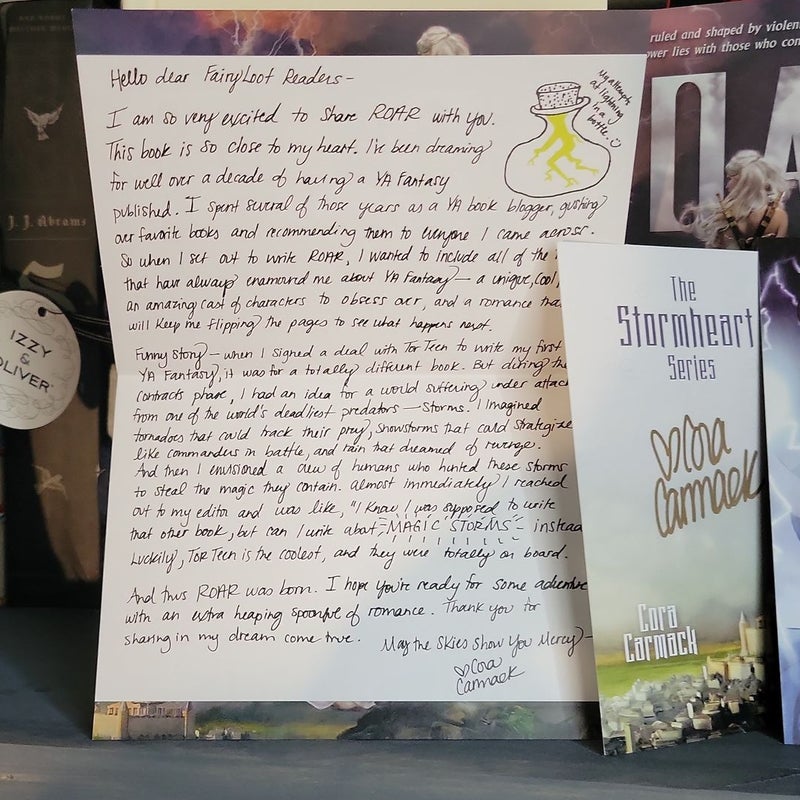 Hello dear FairyLoot Readers –
I am so very excited to share ROAR with you.
This book is so close to my heart. I've been dreaming
for well over a decade of having a YA Fantasy
published. I spent several of those years as a YA book blogger, gushing
over favorite books and recommending them to everyone I came across.
So when I set out to write ROAR, I wanted to include all of the
that have always enamored me about YA Fantasy — a unique, cool,
an amazing cast of characters to obsess over, and a romance tha
will keep me flipping the pages to see what happens next.
Funny Story – when I signed a deal with Tor Teen to write my first
YA Fantasy, it was for a totally different book. But during the
contracts phase, I had an idea for a world suffering under attack
from one of the world's deadliest predators — Storms. I imagined
tornadoes that could track their prey, snowstorms that could strategize
like commanders in battle, and rain that dreamed of revenge.
And then I envisioned a crew of humans who hunted these storms
to steal the magic they contain. Almost immediately I reached
out to my editor and was like, "I know I was supposed to write
that other book, but can I write about MAGIC STORMS instead
Luckily, Tor Teen is the coolest, and they were totally on board.
And thus ROAR was born. I hope you're ready for some adventure
with an extra heaping spoonful of romance. Thank you for
sharing in my dream come true.
May the Skies Show You Mercy –
Cora
Carmack
My attempts
at lightning
in a
bottle.
ruled and shaped by violen
ower lies with those who con
The
Stormheart
Series
Cora
Carmack
Cora
Carmack
J. J. Abrams
IZZY
&
OLIVER